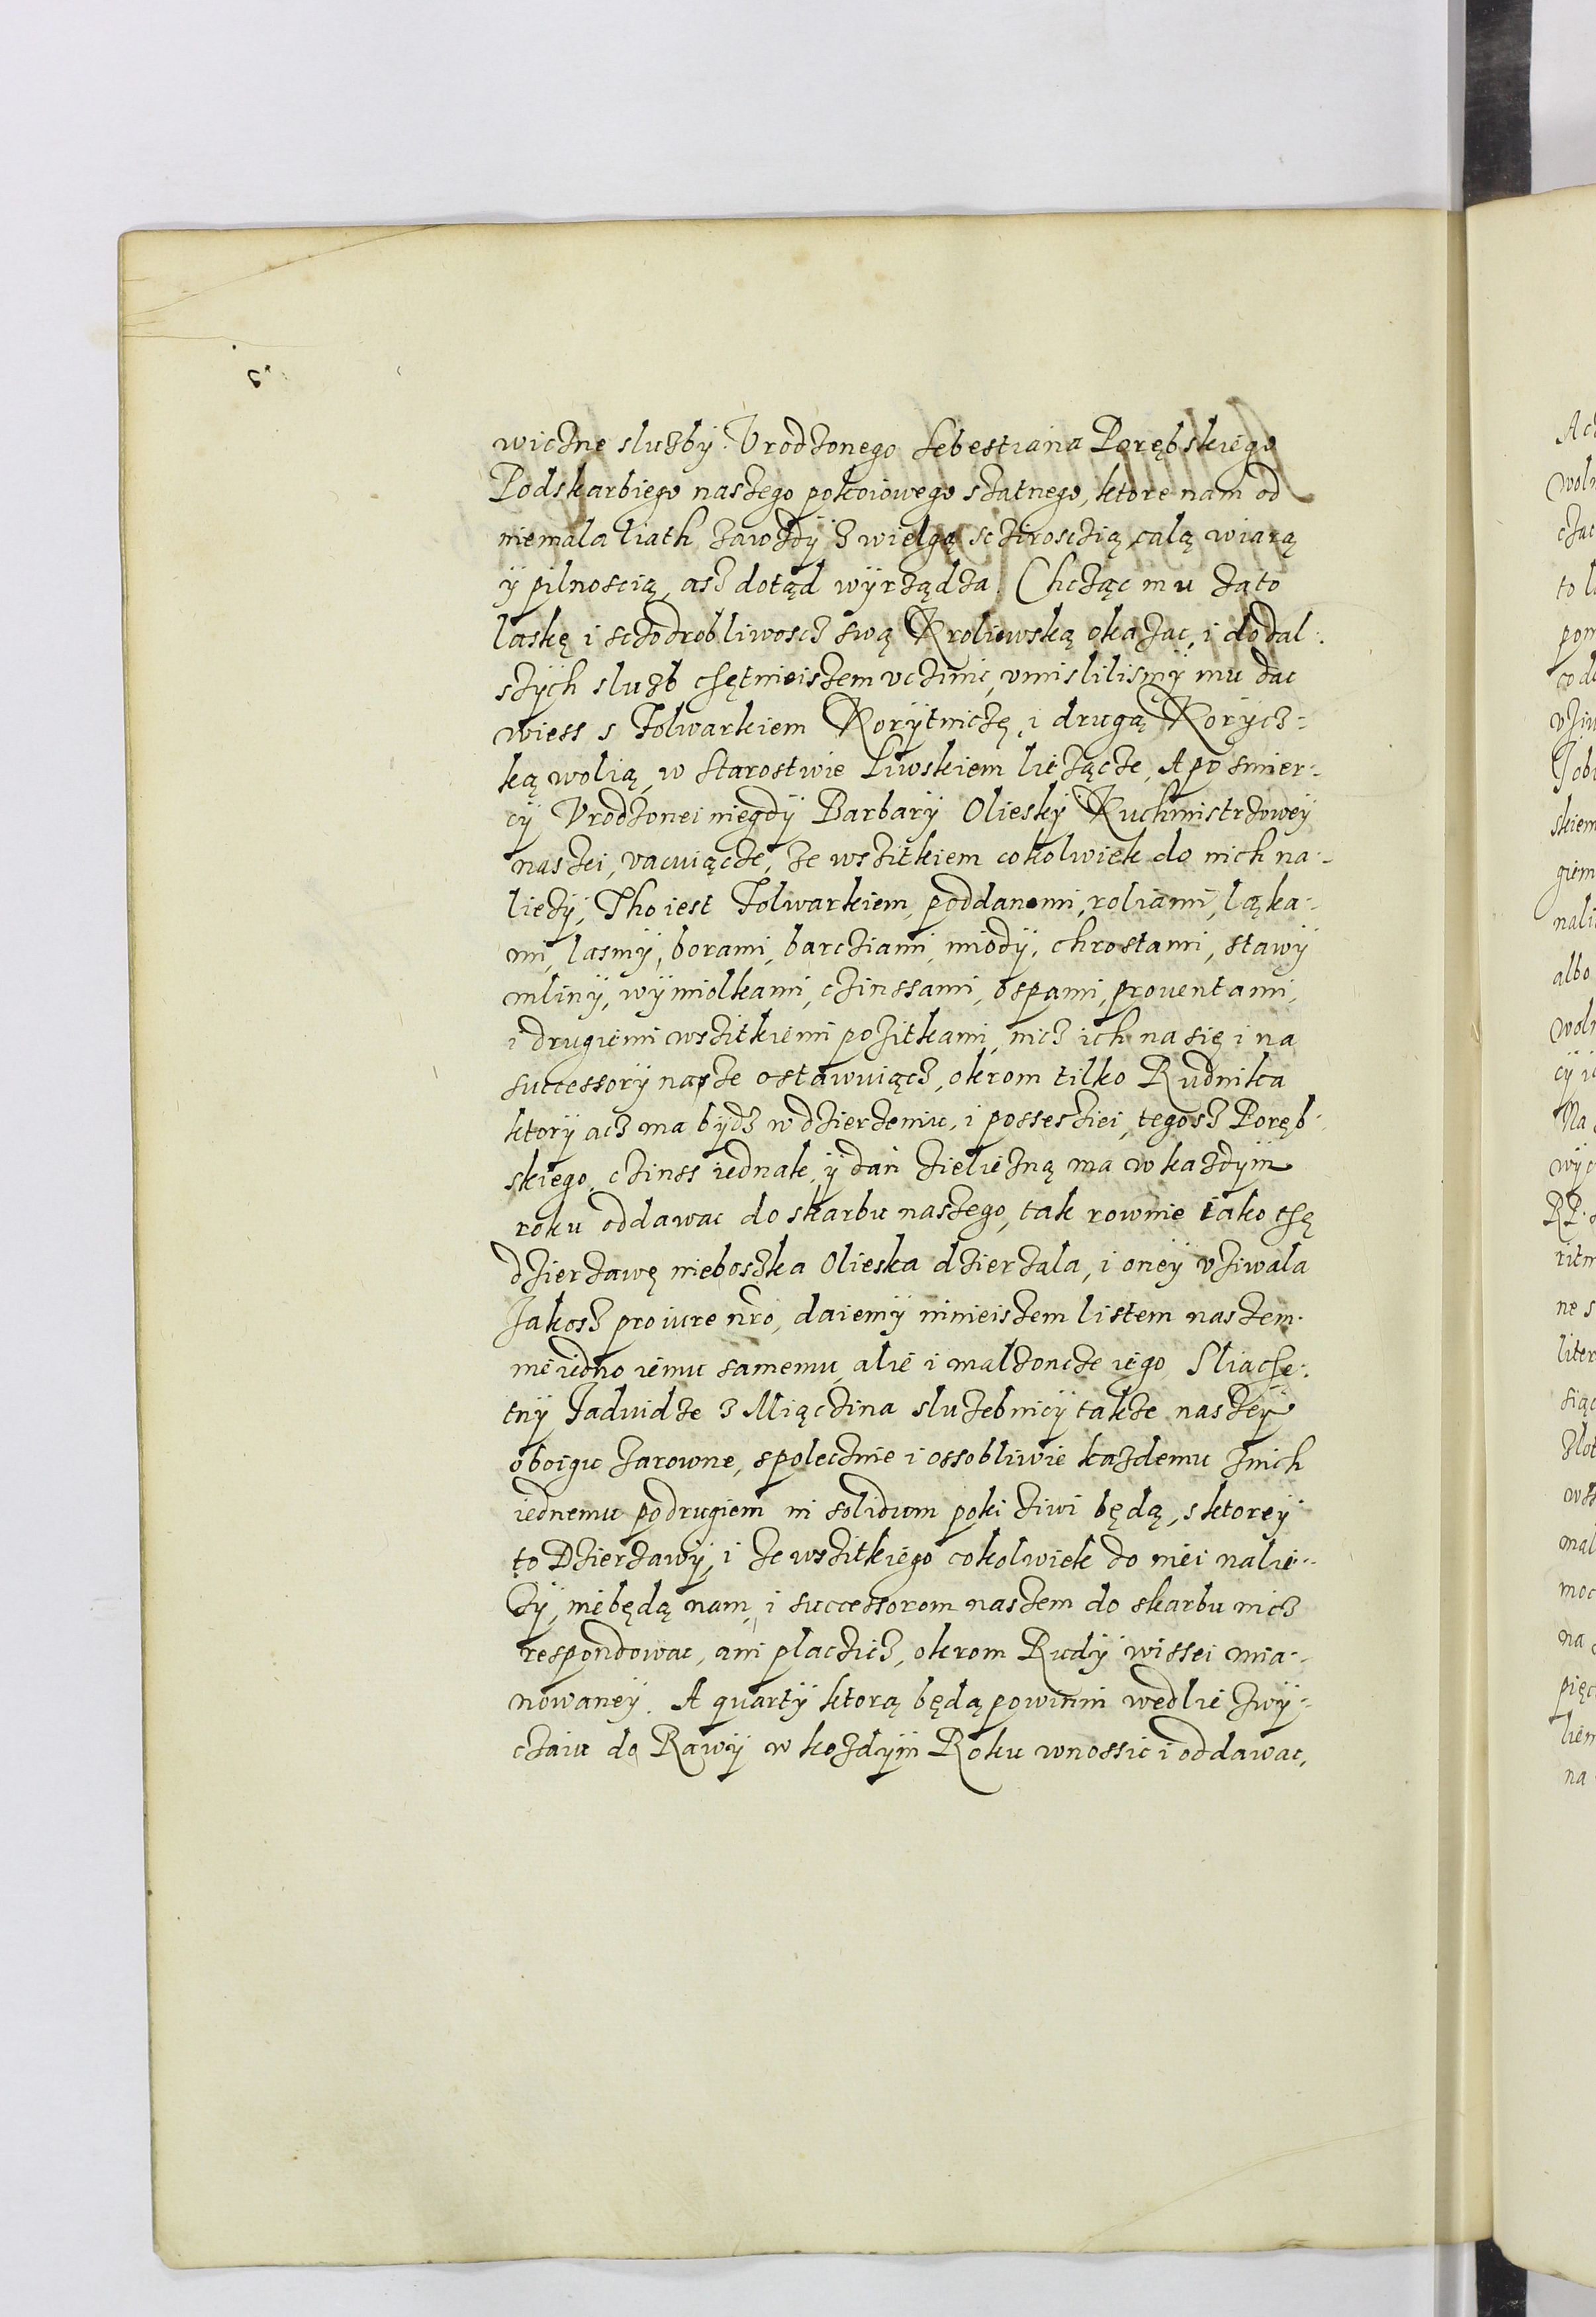 wiczne sluzby Vrodzonego Sebestiana Porębskiego
Podskarbiego naszego pokoiowego szatnego, ktore nam od
niemala liath zawzdÿ z wielgą scziroscią, całą wiarą
ÿ pilnoscią, asz dotąd wÿrządza. Chcząc mu zato
laskę i sczodrobliwoscz swą Kroliewską okazac, i do dal:
szÿch sluzb chętnieiszem vczinic, vmislilismÿ mu dac
wiess s Folwarkiem Korÿtniczę, i drugą Korÿcz:
ką wolią, w Starostwie Liwskiem liezącze, A po smier:
cÿ Vrodzonei niegdÿ Barbarÿ Olieskÿ Kuchmistrzowÿ
naszei, vacuiącze, ze wszitkiem cokolwiek do nich na:
liezÿ, Tho iest Folwarkiem, poddanemi, roliami, ląka:
mi, lasmÿ, borami, barcziami, miodÿ, chrostami, stawÿ
mlinÿ, wÿmiolkami, czinssami, ospami, prouentami,
i drugiemi wszitkiemi pozitkami, nicz ich na się i na
successorÿ nasze ostawuiącz, okrom tilko Rudnika
ktorÿ acz ma bÿdz w dzierzeniu, i possesziei, tegosz Poręb:
skiego, czinss iednak, ÿ dan zieliezną ma w kazdÿm
roku oddawac do skarbu naszego, tak rownie iako thę
dzierzawę nieboszka Olieska dzierzala, i oneÿ vziwala
Jakosz pro iure nro, daiemÿ ninieiszem listem naszem.
nie iedno iemu samemu, alie i malzoncze iego Sliache:
tnÿ Jadvidze z Miączina sluzebnicÿ takze naszeÿ
oboigu zarowne, spolecznie i ossobliwie kazdemu znich
iednemu podrugiem in solidum poki ziwi będą, s ktoreÿ
to Dzierzawÿ, i ze wszitkiego cokolwiek do niei nalie:
zÿ, niebędą nam, i successorom naszem do skarbu nicz
respondowac, ani placzicz, okrom Rudÿ wissei mia:
nowaneÿ. A quartÿ ktorą będą powinni wedlie zwÿ:
czaiu do Rawÿ w kozdÿm Roku wnossic i oddawac,